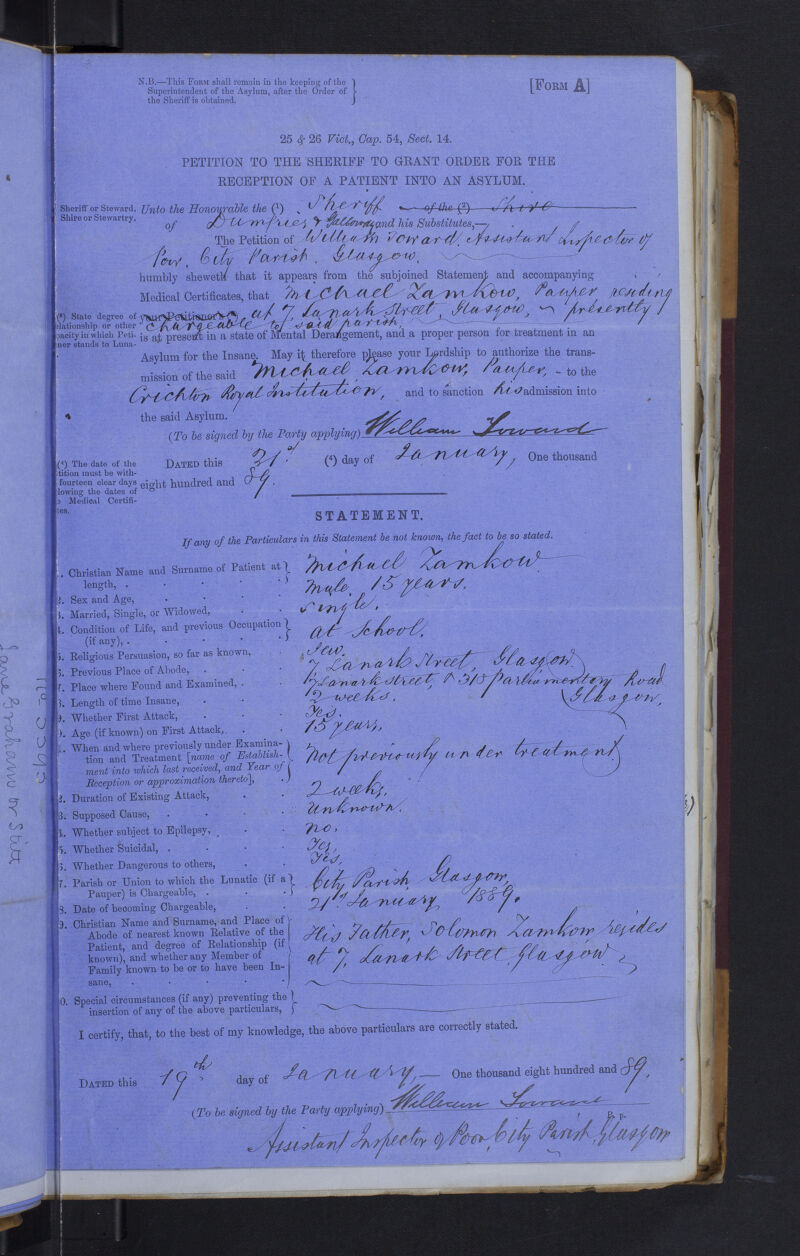 N.B.—This Form shall remain in the keeping of the
Superintendent of the Asylum, after the Order of
the Sheriff is obtained.
[Form A]
25 & 26 Vict., Cap. 54, Sect. 14.
PETITION TO THE SHERIFF TO GRANT ORDER FOR THE
RECEPTION OF A PATIENT INTO AN ASYLUM.
Sheriff or Steward.
Shire or Stewartry.
Unto the Honourable the (¹) Sheriff of the (²) Shire
of Dumfries & Galloway and his Substitutes,—
The Petition of William Soward, Assistant Inspector of
Poor, City Parish, Glasgow.
humbly sheweth that it appears from the subjoined Statement and accompanying
Medical Certificates, that Michael Zamkow, Pauper residing
(³) State degree of
elationship or other
pacity in which Peti-
ner stands to Luna-
your Petitioner's (³) at 7, Lanark Street, Glasgow, presently
chargeable to said parish,
is at present in a state of Mental Derangement, and a proper person for treatment in an
Asylum for the Insane. May it therefore please your Lordship to authorize the trans-
mission of the said Michael Zamkow, Pauper, - to the
Crichton Royal Institution, and to sanction his admission into
the said Asylum.
(To be signed by the Party applying) William Soward
(⁴) The date of the
tition must be with-
fourteen clear days
lowing the dates of
Medical Certifi-
tes.
Dated this 21st (⁴) day of January, One thousand
eight hundred and 89.
STATEMENT.
If any of the Particulars in this Statement be not known, the fact to be so stated.
1. Christian Name and Surname of Patient at length, . Michael Zamkow
2. Sex and Age, Male, 15 years.
3. Married, Single, or Widowed, Single.
4. Condition of Life, and previous Occupation (if any), . At School.
5. Religious Persuasion, so far as known, Jew.
6. Previous Place of Abode, 7 Lanark Street, Glasgow
7. Place where Found and Examined, . 7 Lanark Street, & 318 Parliamentary Road Glasgow.
8. Length of time Insane, 2 weeks.
9. Whether First Attack, Yes.
0. Age (if known) on First Attack, 15 years.
1. When and where previously under Examina-
tion and Treatment [name of Establish-
ment into which last received, and Year of
Reception or approximation thereto], Not previously under treatment
2. Duration of Existing Attack, 2 weeks.
3. Supposed Cause, Unknown.
4. Whether subject to Epilepsy, No.
5. Whether Suicidal, . Yes.
6. Whether Dangerous to others, Yes.
7. Parish or Union to which the Lunatic (if a Pauper) is Chargeable, . City Parish Glasgow,
8. Date of becoming Chargeable, 21st January 1889.
9. Christian Name and Surname, and Place of
Abode of nearest known Relative of the
Patient, and degree of Relationship (if
known), and whether any Member of
Family known to be or to have been In-
sane,
His Father, Solomon Zamkow resides
at 7, Lanark Street Glasgow,
0. Special circumstances (if any) preventing the
insertion of any of the above particulars,
I certify, that, to the best of my knowledge, the above particulars are correctly stated.
Dated this 19th day of January,— One thousand eight hundred and 89.
(To be signed by the Party applying) William Soward
Assistant Inspector of Poor, City Parish, Glasgow